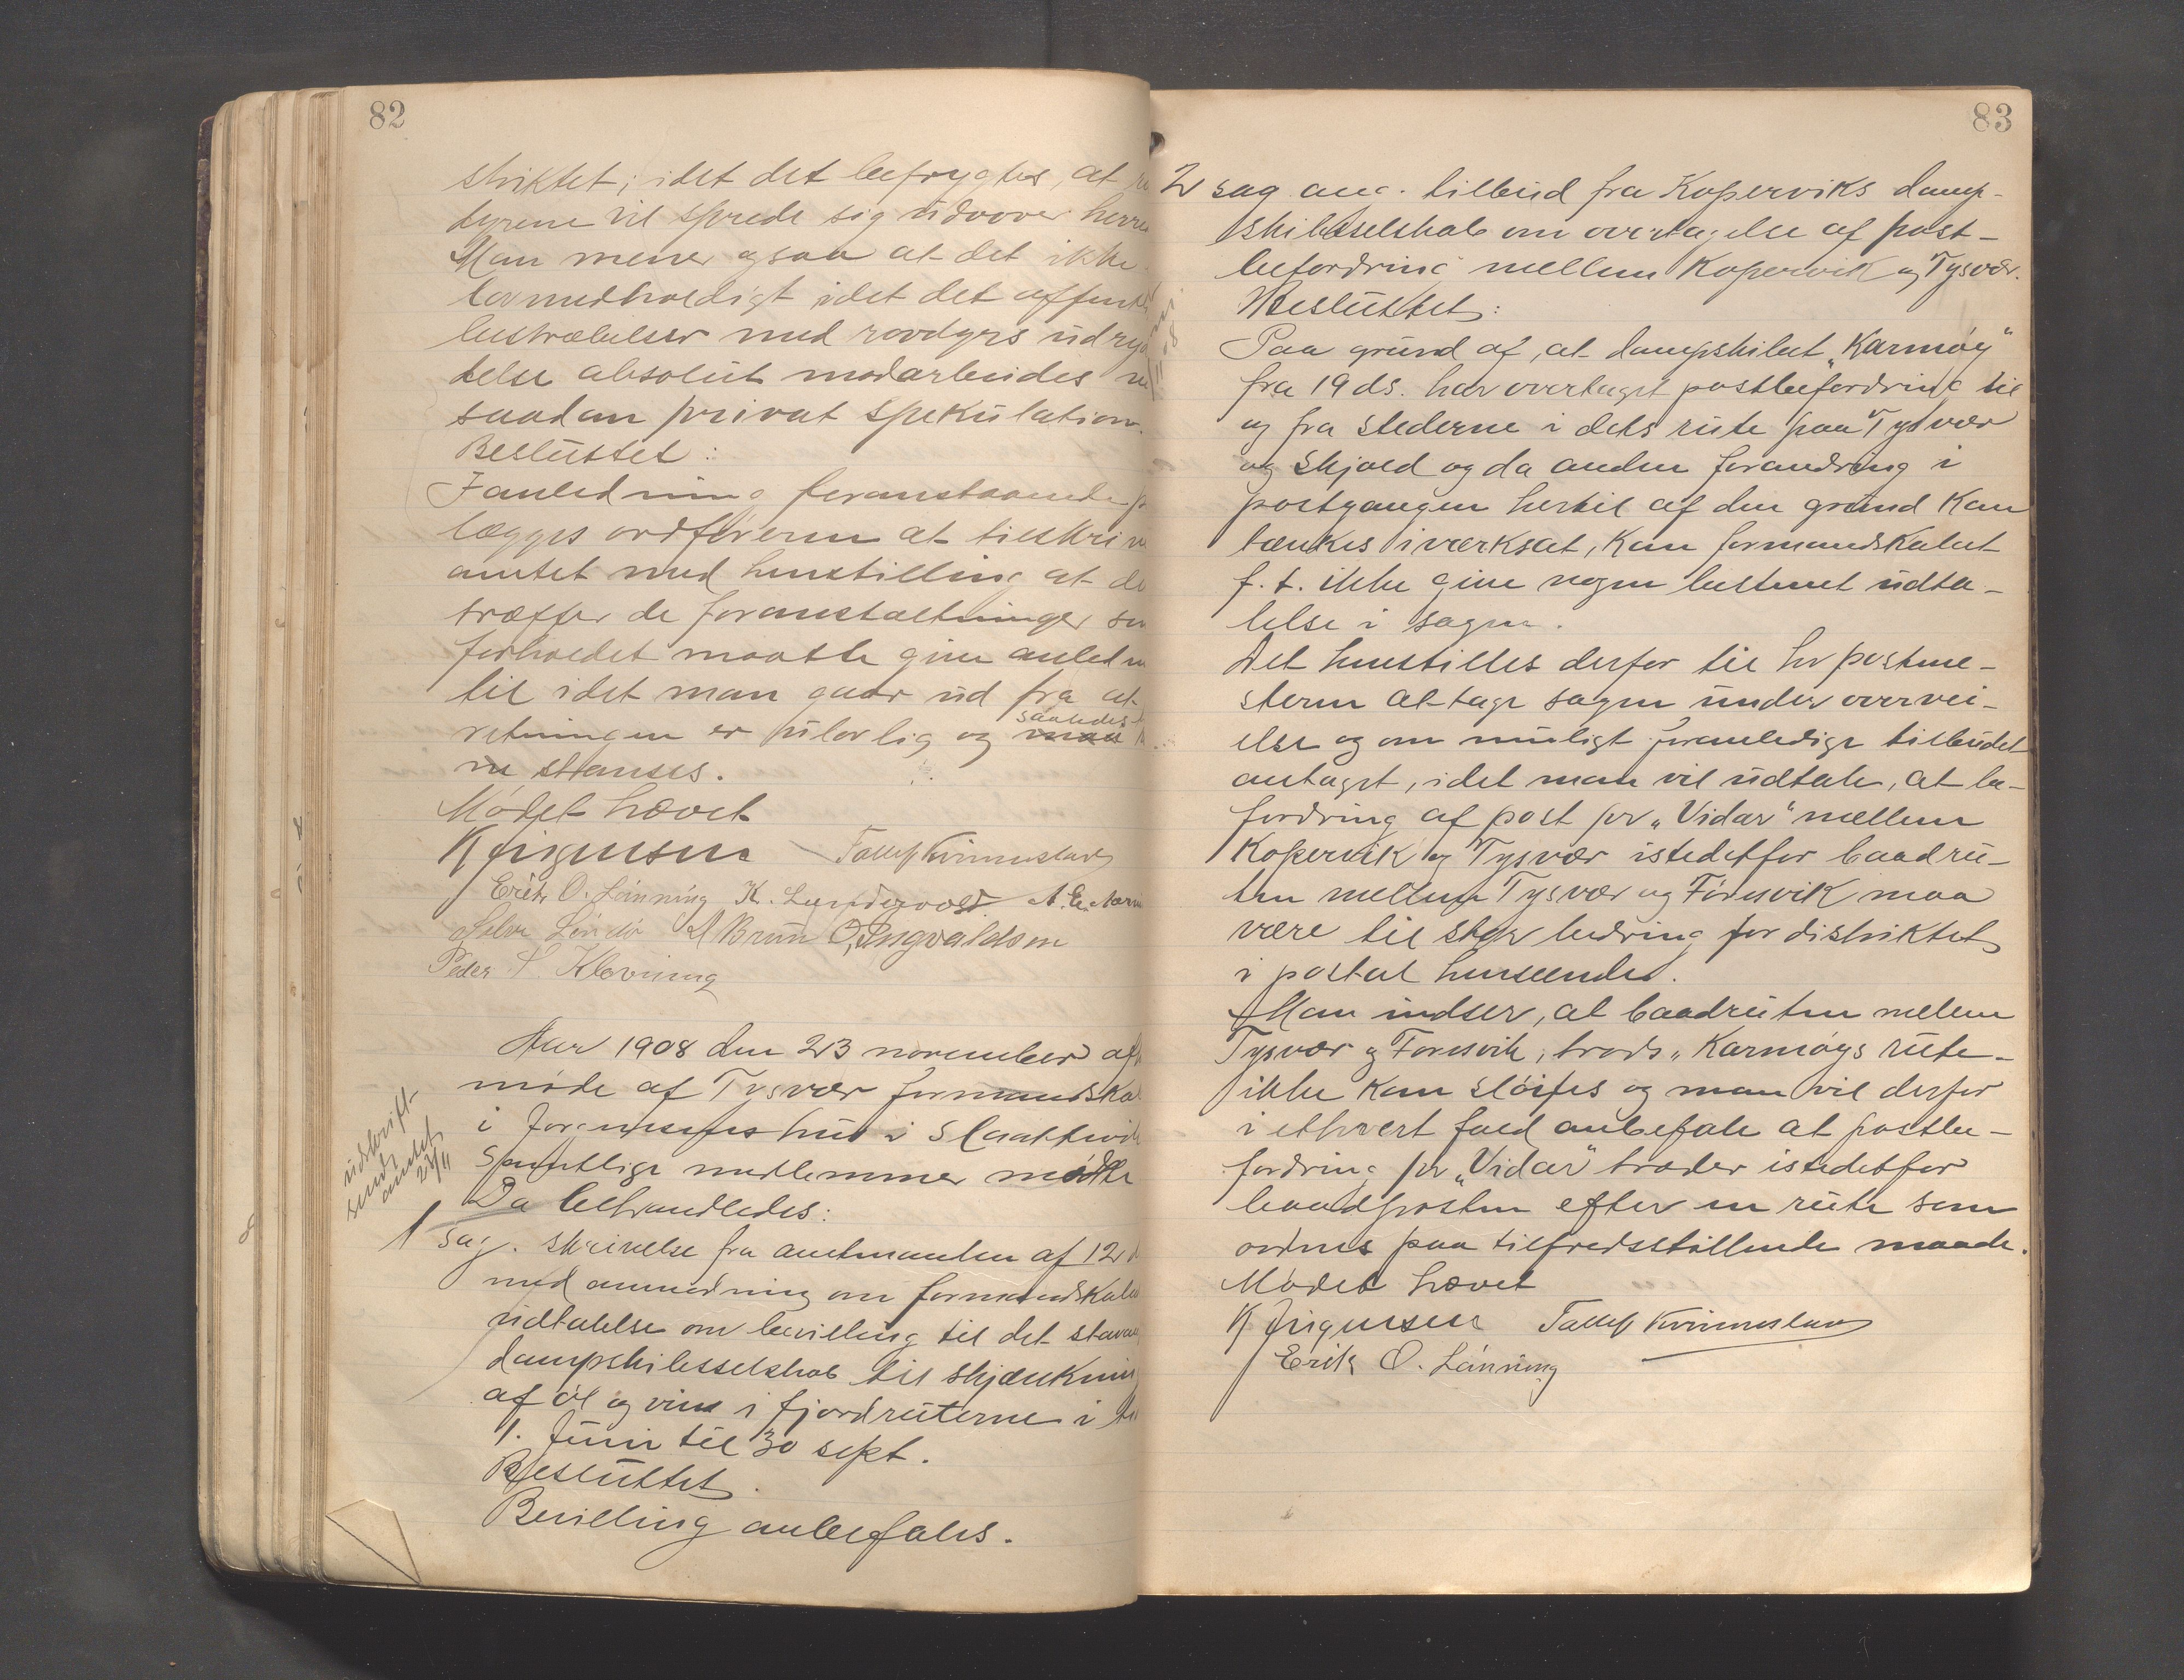 82
striktet; idet det befrygtes, at
dyrene vil sprede sig udover herre
Man mener ogsaa at det ikke
lovmedholdigt idet det offent
bestræbelser med rovdyrs udryd
telse absolut modarbeides
saadan privat spekulation.
Besluttet:
I anledning foranstaaende
lægges ordføreren at tilskri
amtet med henstilling at de
træffer de foranstaltninger so
forholdet maatte give anledn
til idet man gaar ud fra at
retningen er ulovlig og saaledes
stanses.
Mødet hævet
K Jørgensen
Erik O. Lønning K. Lundervold
A Brun O, Ingvaldsen
Peder S. Klovning
Aar 1908 den 23 november af
møde af Tysvær formandska
i Jørgensens hus i Slaattevik
Samtlige medlemmer mødte
Da behandledes:
udskrift
sendt
amtet
1 sag. skrivelse fra amtmanden af 12
med anmodning om formandskab
udtalelse om bevilling til det stavan
dampskibsselskab til skjænknin
af øl og vin i fjordruterne i
1. Juni til 30 sept.
Besluttet.
Bevilling anbefales.
83
2 sag ang. tilbud fra Koperviks damp-
skibsselskab om overtagelse af post-
befordring mellem Kopervik og Tysvær.
Besluttet:
Paa grund af, at dampskibet "Karmøy"
fra 19 ds. har overtaget postbefordring til
og fra stederne i dets rute paa Tysvær
og Skjold og da anden forandring i
postgangen hertil af den grund kan
tænkes iverksat, kan formandskabet
f. t. ikke give nogen bestemt udta-
lelse i sagen.
Det henstilles derfor til hr postme-
steren at tage sagen under overvei-
else og om muligt foranledige tilbudet
antaget, idet man vil udtale, at be-
fordring af post pr "Vidar" mellem
Kopervik og Tysvær istedetfor baadru-
ten mellem Tysvær og Føresvik maa
være til stor bedring for distriktet
i postal henseende.
Man indser, at baadruten mellem
Tysvær og Føresvik, trods "Karmøys rute-
ikke kan sløifes og man vil derfor
i ethvert fald anbefale at postbe-
fordring pr "Vidar" træder istedetfor
baadposten efter en rute som
ordnes paa tilfredsstillende maade.
Mødet hævet
K Jørgensen
Erik O. Lønning